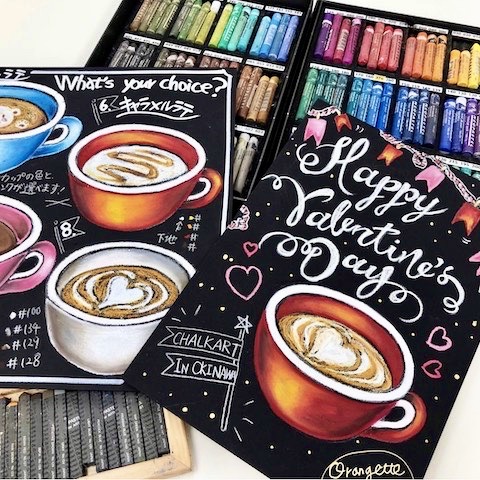 ラテ
What's your choice?
6.
キャラメルラテ
カップの色と
が選べます!
8.
下地
#100
#134
#129
#128
Happy
Valentine's
Day
CHALKART
IN OKINAWA
Orangette